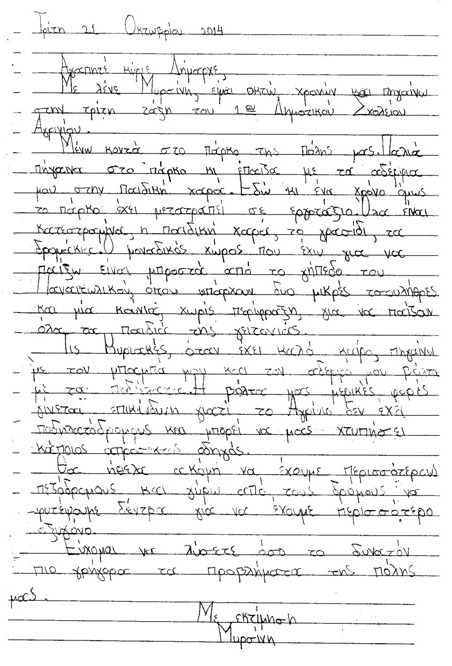 Τρίτη 21 Οκτωβρίου 2014
Αγαπητέ κύριε Δήμαρχε,
Με λένε Μυρσίνη, είμαι οκτώ χρονών και πηγαίνω
στην τρίτη τάξη του 1ου Δημοτικού Σχολείου
Αγρινίου.
Μένω κοντά στο πάρκο της πόλης μας. Παλιά
πήγαινα στο πάρκο κι έπαιζα με τα αδέρφια
μου στην παιδική χαρά. Εδώ κι ένα χρόνο όμως
το πάρκο έχει μετατραπεί σε εργοτάξιο. Όλα είναι
κατεστραμένα, η παιδική χαρά, το γρασίδι, τα
δρομάκια. Ο μοναδικός χώρος που έχω για να
παίξω είναι μπροστά από το γήπεδο του
Παναιτωλικού, όπου υπάρχουν δυο μικρές τσουλήθρες
και μία κούνια, χωρίς περίφραξη, για να παίξουν
όλα τα παιδιά της γειτονιάς.
Τις Κυριακές, όταν έχει καλό καιρό, πηγαίνω
με τον μπαμπά μου και τον αδερφό μου βόλτα
με τα ποδήλατα. Η βόλτα μας μερικές φορές
γίνεται επικίνδυνη γιατί το Αγρίνιο δεν έχει
ποδηλατόδρομους και μπορεί να μας χτυπήσει
κάποιος απρόσεκτος οδηγός.
Θα ήθελα ακόμη να έχουμε περισσότερους
πεζόδρομους και γύρω από τους δρόμους να
φυτέψουμε δέντρα για να έχουμε περισσότερο
οξυγόνο.
Εύχομαι να λύσετε όσο το δυνατόν
πιο γρήγορα τα προβλήματα της πόλης
μας.
Με εκτίμηση
Μυρσίνη